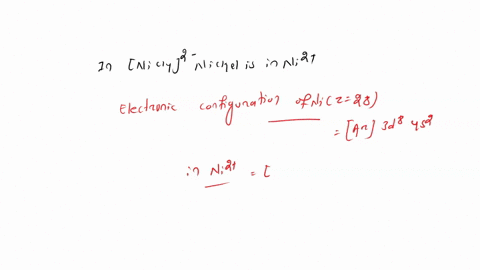 In [Nicly]2- Nickel is in Ni2+
Electronic configuration of Ni(z=28)
= [Ar] 3d8 4s2
in Ni2+ = [